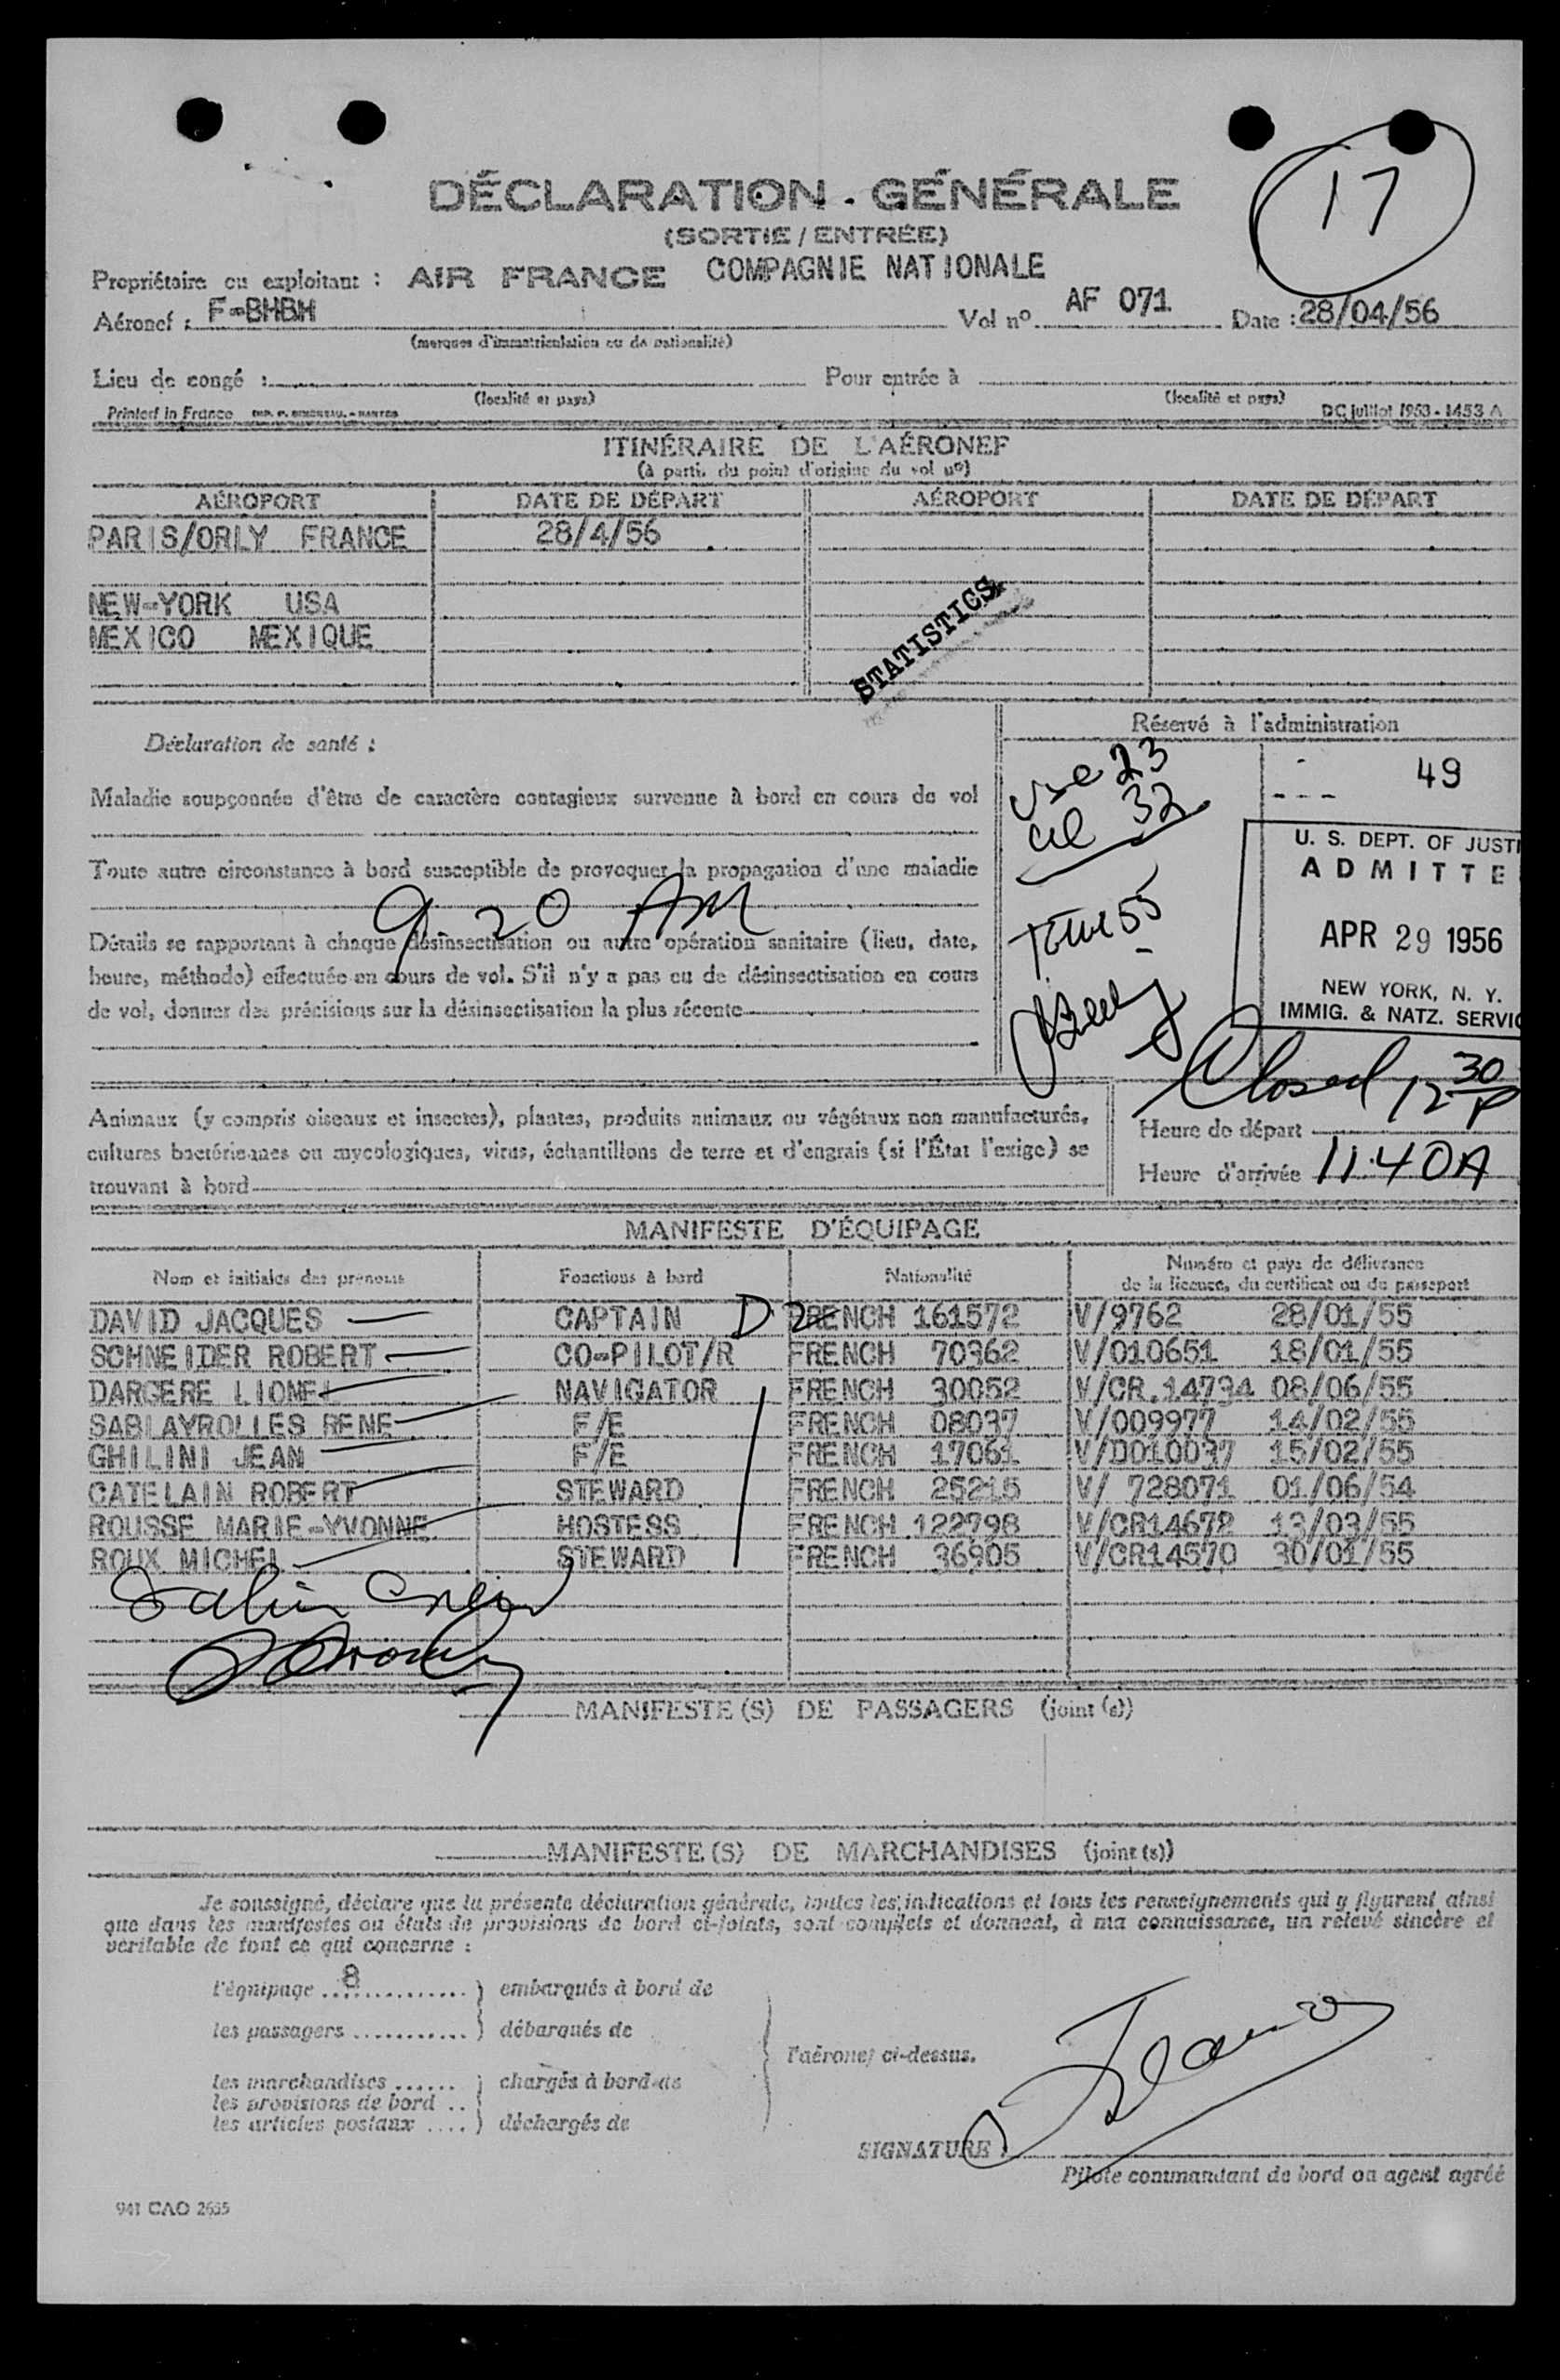 17
DÉCLARATION - GÉNÉRALE
(SORTIE / ENTRÉE)
Propriétaire ou exploitant : AIR FRANCE COMPAGNIE NATIONALE
Aéronef : F-BHBH Vol nº AF 071 Date : 28/04/56
(marques d'immatriculation ou de nationalité)
Lieu de congé : Pour entrée à
(localité et pays) (localité et pays)
Printed in France DC juillet 1953 - 1453 A
ITINÉRAIRE DE L'AÉRONEF
(à partir du point d'origine du vol nº)
AÉROPORT DATE DE DÉPART AÉROPORT DATE DE DÉPART
PARIS/ORLY FRANCE 28/4/56
NEW-YORK USA
MEXICO MEXIQUE
STATISTICS
Réservé à l'administration
Déclaration de santé :
49
use 23
al 32
Maladie soupçonnée d'être de caractère contagieux survenue à bord en cours de vol
U. S. DEPT. OF JUSTI
ADMITTE
APR 29 1956
NEW YORK, N. Y.
IMMIG. & NATZ. SERVIC
Toute autre circonstance à bord susceptible de provoquer la propagation d'une maladie
9 20 AM
55
Détails se rapportant à chaque désinsectisation ou autre opération sanitaire (lieu, date,
heure, méthode) effectuée en cours de vol. S'il n'y a pas eu de désinsectisation en cours
de vol, donner des précisions sur la désinsectisation la plus récente
Closed 12 30 P
Animaux (y compris oiseaux et insectes), plantes, produits animaux ou végétaux non manufacturés,
cultures bactériennes ou mycologiques, virus, échantillons de terre et d'engrais (si l'État l'exige) se
trouvant à bord
Heure de départ
Heure d'arrivée 11.40A
MANIFESTE D'ÉQUIPAGE
Nom et initiales des prénoms Fonctions à bord Nationalité Numéro et pays de délivrance
de la licence, du certificat ou du passeport
DAVID JACQUES CAPTAIN D2 FRENCH 161572 V/9762 28/01/55
SCHNEIDER ROBERT CO-PILOT/R FRENCH 70362 V/010651 18/01/55
DARGERE LIONEL NAVIGATOR FRENCH 30052 V/CR.14734 08/06/55
SABLAYROLLES RENE F/E FRENCH 08037 V/009977 14/02/55
GHILINI JEAN F/E FRENCH 17061 V/DO10037 15/02/55
CATELAIN ROBERT STEWARD FRENCH 25215 V/ 728071 01/06/54
ROUSSE MARIE-YVONNE HOSTESS FRENCH 122798 V/CR14672 13/03/55
ROUX MICHEL STEWARD FRENCH 36905 V/CR14570 30/01/55
MANIFESTE(S) DE PASSAGERS (joint(s))
MANIFESTE(S) DE MARCHANDISES (joint(s))
Je soussigné, déclare que la présente déclaration générale, toutes les indications et tous les renseignements qui y figurent ainsi
que dans les manifestes ou états de provisions de bord ci-joints, sont complets et donnent, à ma connaissance, un relevé sincère et
véritable de tout ce qui concerne :
l'équipage 8 embarqués à bord de
les passagers débarqués de
l'aéronef ci-dessus.
les marchandises chargés à bord de
les provisions de bord
les articles postaux déchargés de
SIGNATURE :
Pilote commandant de bord ou agent agréé
941 CAO 2635